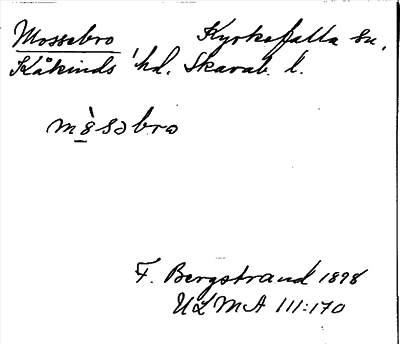 Mossebro Kyrkefalla sn,
Kåkinds hd. Skarab. l.
mòsəbro
F. Bergstrand 1898
ULMA 111:170